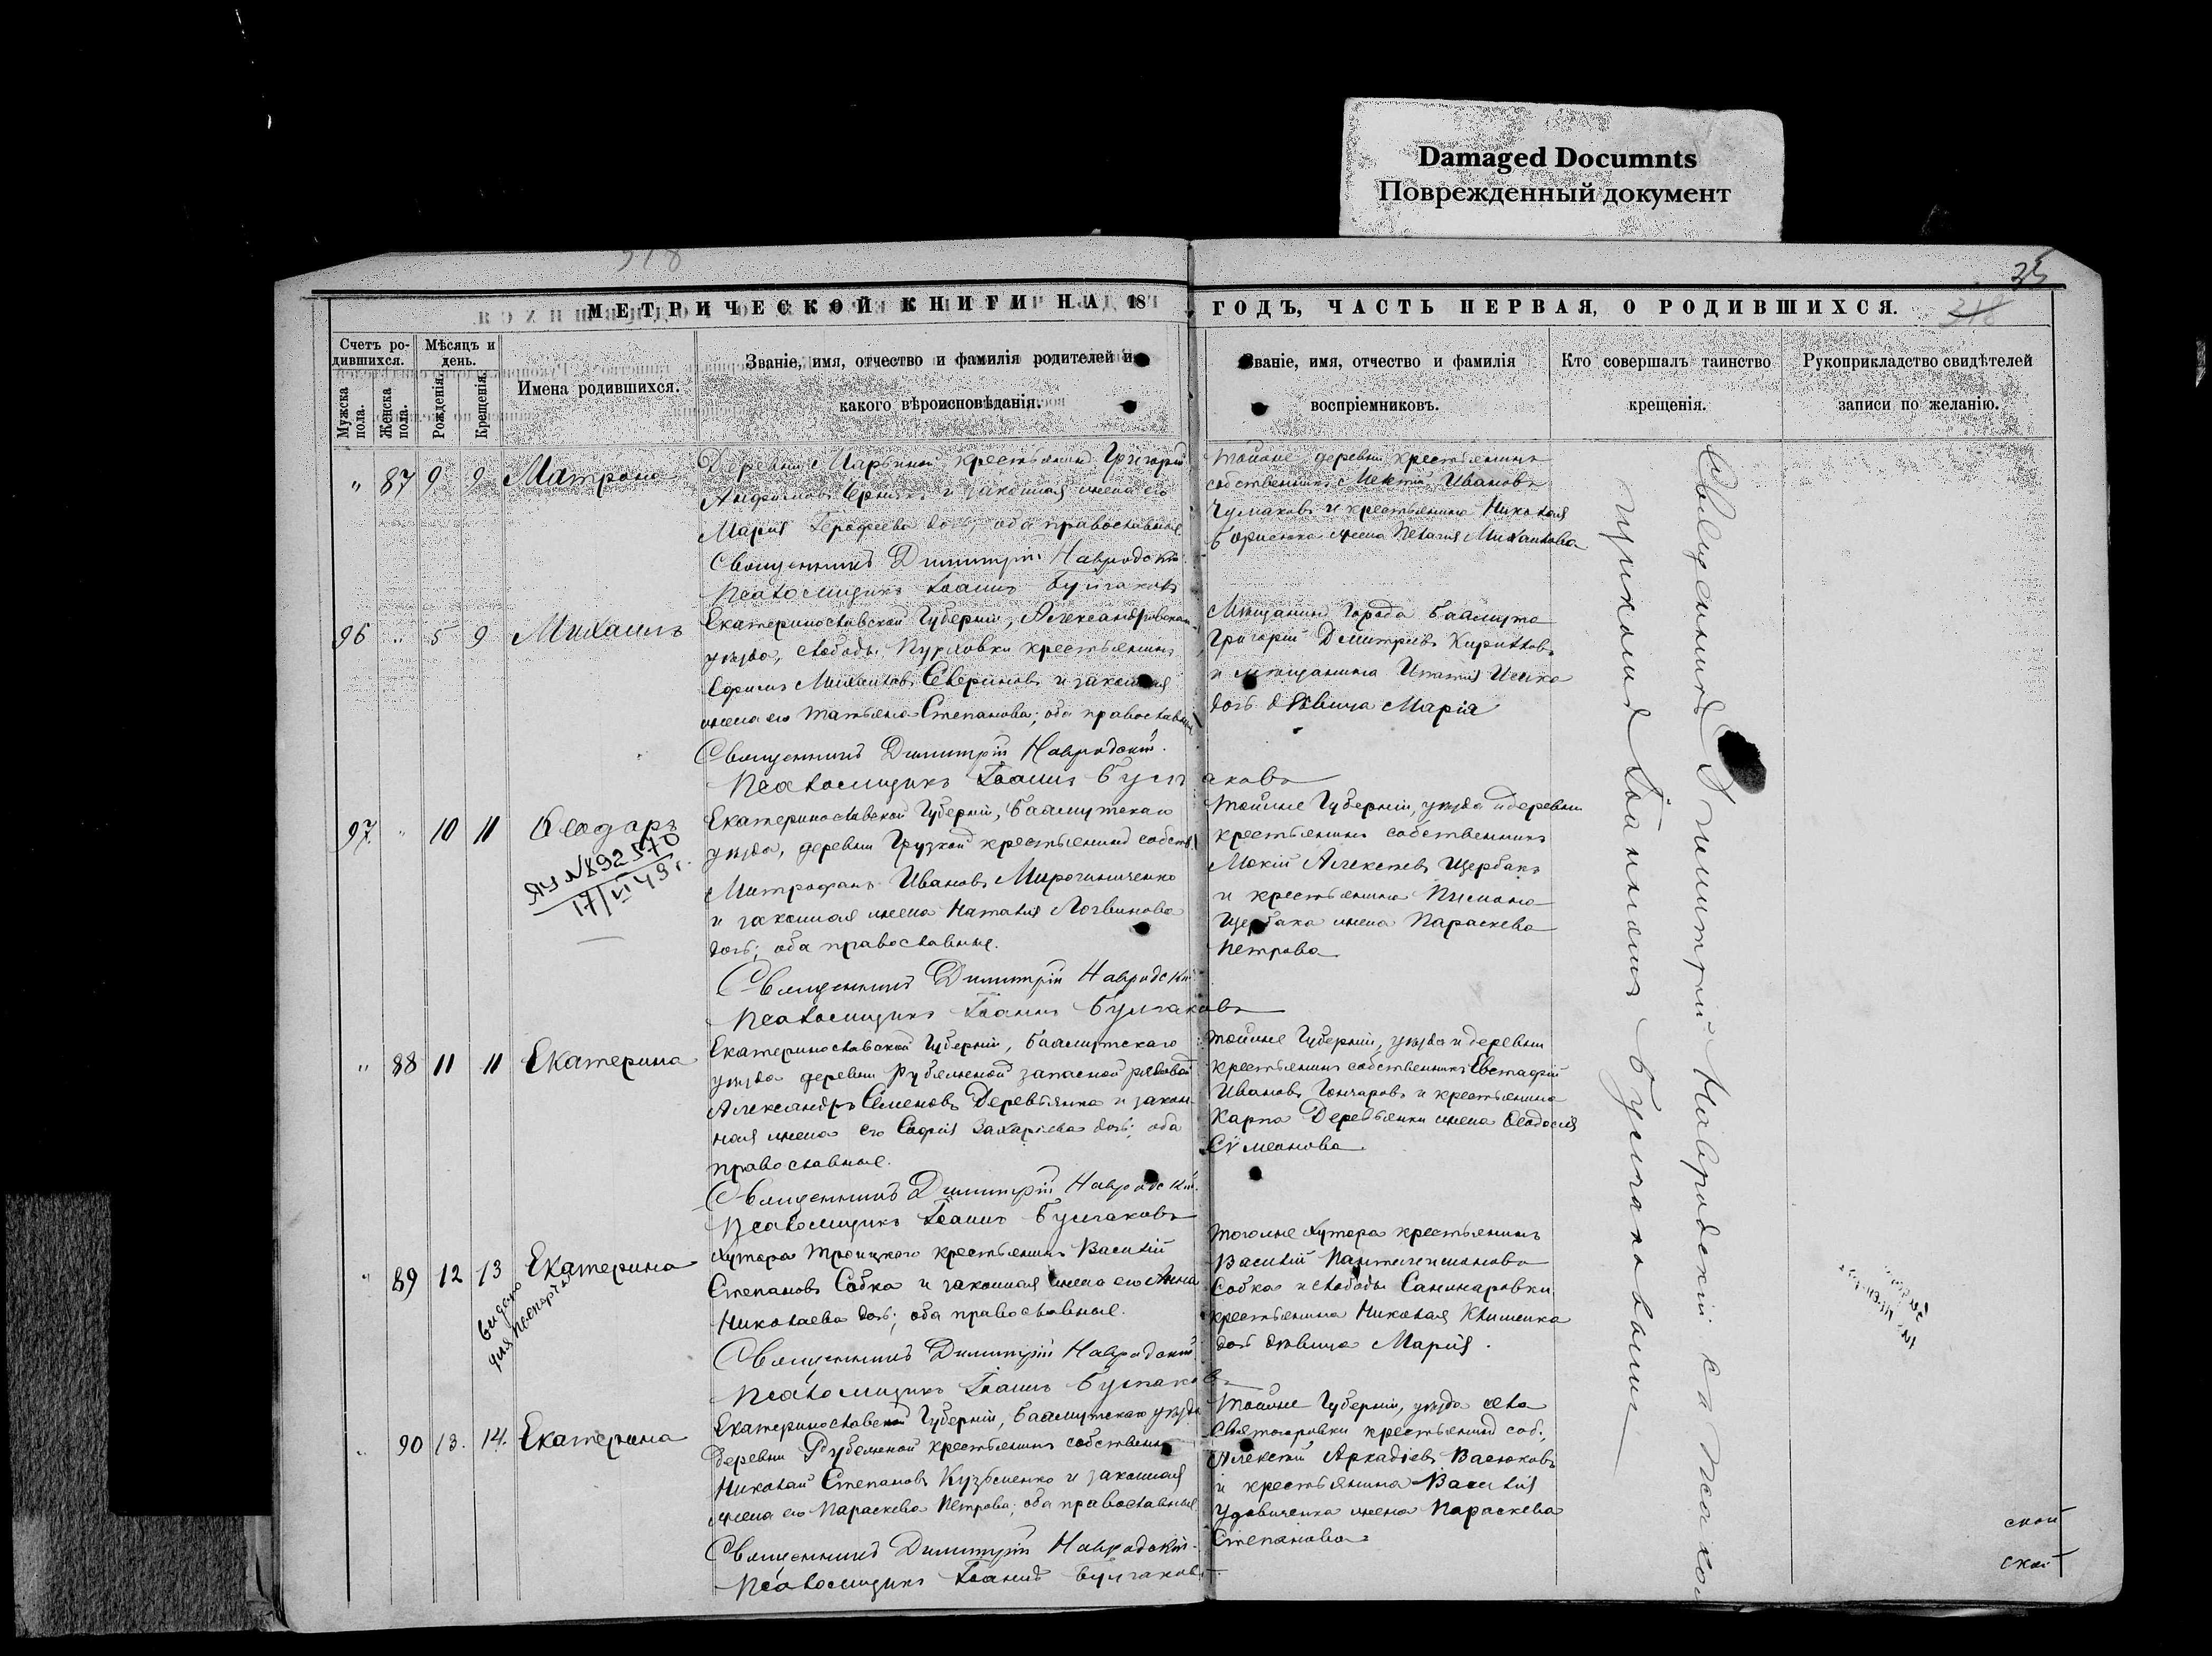 Damaged Documnts
Поврежденный документ
318
35
318
МЕТРИЧЕСКОЙ КНИГИ НА 18
ГОДЪ, ЧАСТЬ ПЕРВАЯ, О РОДИВШИХСЯ.
Счетъ ро-
дившихся.
Мужска пола.
Женска пола.
Мѣсяцъ и
день.
Рожденія.
Крещенія.
Имена родившихся.
Званіе, имя, отчество и фамилія родителей и
какого вѣроисповѣданія.
Званіе, имя, отчество и фамилія
воспріемниковъ.
Кто совершалъ таинство
крещенія.
Рукоприкладство свидѣтелей
записи по желанію.
" 87 9 9 Матрона
Деревни Марьиной крестьянинъ Григорій
и законная жена его
Марія дочь, оба православные
Священникъ Димитрій Навродскій.
Псаломщикъ Іоаннъ Булгаковъ
Тойже деревни крестьянинъ
собственникъ Ивановъ
Чумаковъ и крестьянина Николая
жена Пелагія Михайлова
96 " 5 9 Михаилъ
Екатеринославской Губерніи, Александровскаго
уѣзда, слободы крестьянинъ
Ефимъ Михайловъ Севериновъ и законная
жена его Татьяна Степанова; оба православные
Священникъ Димитрій Навродскій.
Псаломщикъ Іоаннъ Булгаковъ
Мѣщанинъ города Бахмута
Григорій Дмитріевъ Кириловъ
и мѣщанина Игнатія
дочь дѣвица Марія
97. " 10 11 Ѳеодоръ
ЯЧ №892570
17/VI 49 г.
Екатеринославской Губерніи, Бахмутскаго
уѣзда, деревни Грузкой крестьянинъ собств.
Митрофанъ Ивановъ Мирошниченко
и законная жена Наталія Логвинова
дочь; оба православные.
Священникъ Димитрій Навродскій.
Псаломщикъ Іоаннъ Булгаковъ
Тойже Губерніи, уѣзда и деревни
крестьянинъ собственникъ
Мокій Алексѣевъ Щербакъ
и крестьянина Пимона
Щербака жена Параскева
Петрова
" 88 11 11 Екатерина
Екатеринославской Губерніи, Бахмутскаго
уѣзда деревни Рубежной запасной рядовой
Александръ Семеновъ Деревьянка и закон-
ная жена его Софія Захаріева дочь; оба
православные.
Священникъ Димитрій Навродскій.
Псаломщикъ Іоаннъ Булгаковъ
Тойже Губерніи, уѣзда и деревни
крестьянинъ собственникъ Евстафій
Ивановъ Гончаровъ и крестьянина
Карпа Деревьянки жена Ѳеодосія
Сѵмеонова
" 89 12 13 Екатерина
видано
для паспорта
Хутора Троицкаго крестьянинъ Василій
Степановъ Собка и законная жена его Анна
Николаева дочь; оба православные.
Священникъ Димитрій Навродскій.
Псаломщикъ Іоаннъ Булгаковъ
Тогоже хутора крестьянинъ
Василій Пантелеимонова
Собка и слободы Санжаровки
крестьянина Николая Клименка
дочь дѣвица Марія.
" 90 13. 14. Екатерина
Екатеринославской Губерніи, Бахмутскаго уѣзда
деревни Рубежной крестьянинъ собственн
Николай Степановъ Кузьменко и законная
жена его Параскева Петрова; оба православные
Священникъ Димитрій Навродскій.
Псаломщикъ Іоаннъ Булгаковъ
Тойже Губерніи, уѣзда села
крестьянинъ соб.,
Алексѣй Аркадіевъ Васюковъ
и крестьянина Василія
Удовиченка жена Параскева
Степанова
Священникъ Димитрій Навродскій съ псалом
щикомъ Іоанномъ Булгаковымъ
ской
ской